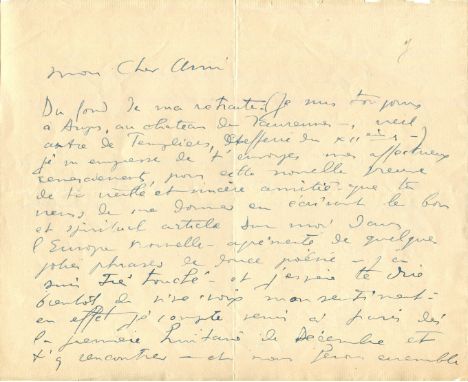 mon Cher Ami
Du fond de ma retraite (je suis toujours
à Aups, au chateau de Taurenne -, vieil
antre de Templiers, du XIIème s -)
je m'empresse de t'envoyer mes affectueux
remerciements pour cette nouvelle preuve
de ta vieille et sincère amitié que tu
viens de me donner en écrivant le bon
et spirituel article sur moi dans
l'Europe nouvelle - de quelques
jolies phrases de douce poésie - J'en
suis très touché - et j'espère te dire
bientôt de vive voix mon sentiment -
en effet je compte venir à Paris dès
la première quinzaine de Décembre et
t'y rencontrer - et nous ferons ensemble